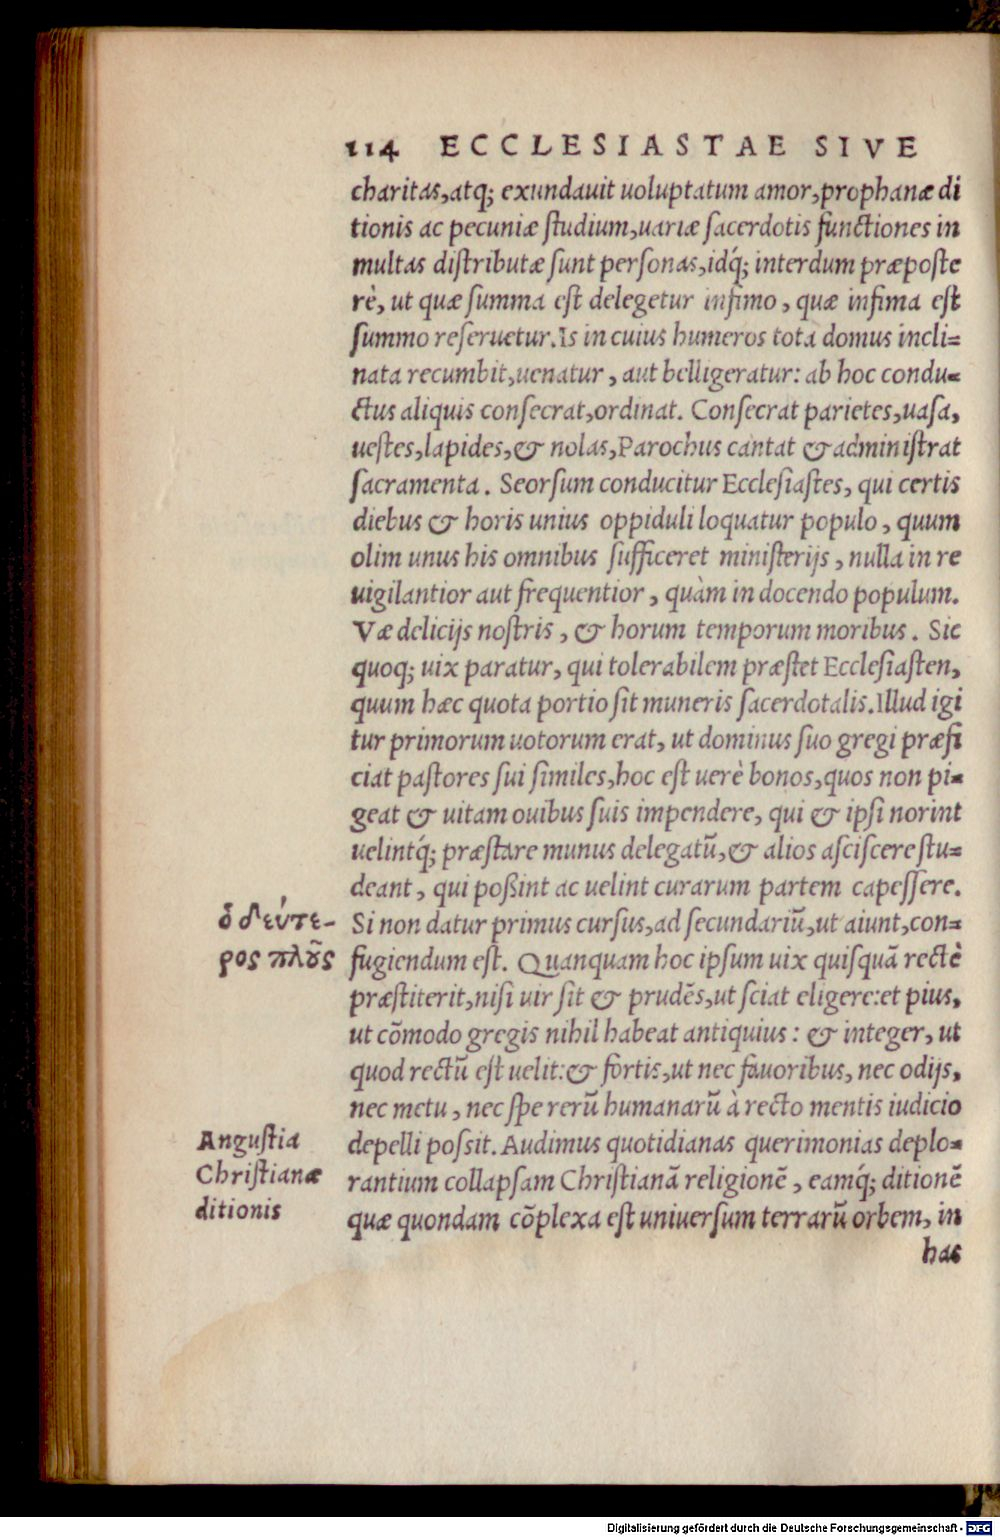 114 ECCLESIASTAE SIVE
charitas, atq; exundauit uoluptatum amor, prophanæ di
tionis ac pecuniæ ſtudium, uariæ ſacerdotis functiones in
multas diſtributæ ſunt perſonas, idq́; interdum præpoſte
rè, ut quæ ſumma eſt delegetur infimo, quæ infima eſt
ſummo reſeruetur. Is in cuius humeros tota domus incli=
nata recumbit, uenatur, aut belligeratur: ab hoc condu=
ctus aliquis conſecrat, ordinat. Conſecrat parietes, uaſa,
ueſtes, lapides, & nolas, Parochus cantat & adminiſtrat
ſacramenta. Seorſum conducitur Eccleſiaſtes, qui certis
diebus & horis unius oppiduli loquatur populo, quum
olim unus his omnibus ſufficeret miniſterijs, nulla in re
uigilantior aut frequentior, quàm in docendo populum.
Væ delicijs noſtris, & horum temporum moribus. Sic
quoq; uix paratur, qui tolerabilem præſtet Eccleſiaſten,
quum hæc quota portio ſit muneris ſacerdotalis. Illud igi
tur primorum uotorum erat, ut dominus ſuo gregi præfi
ciat paſtores ſui ſimiles, hoc eſt uerè bonos, quos non pi=
geat & uitam ouibus ſuis impendere, qui & ipſi norint
uelintq́; præſtare munus delegatũ, & alios aſciſcere ſtu=
deant, qui poßint ac uelint curarum partem capeſſere.
ὁ δεύτε-
ρος πλοῦς
Si non datur primus curſus, ad ſecundariũ, ut aiunt, con=
fugiendum eſt. Quanquam hoc ipſum uix quiſquã rectè
præſtiterit, niſi uir ſit & prudẽs, ut ſciat eligere: et pius,
ut cõmodo gregis nihil habeat antiquius: & integer, ut
quod rectũ eſt uelit: & fortis, ut nec fauoribus, nec odijs,
nec metu, nec ſpe rerũ humanarũ à recto mentis iudicio
Anguſtia
Chriſtianæ
ditionis
depelli poſsit. Audimus quotidianas querimonias deplo=
rantium collapſam Chriſtianã religionẽ, eamq́; ditionẽ
quæ quondam cõplexa eſt uniuerſum terrarũ orbem, in
has
Digitalisierung gefördert durch die Deutsche Forschungsgemeinschaft - DFG